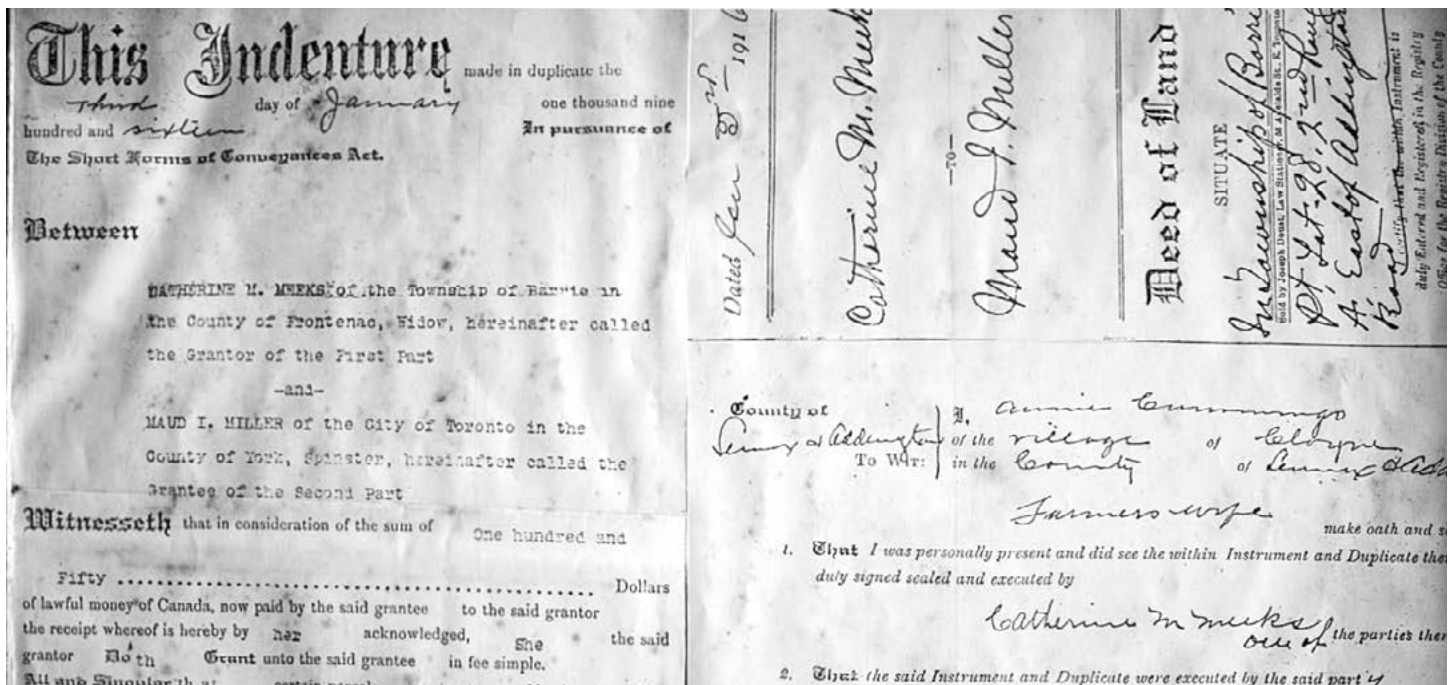 This Indenture made in duplicate the
Third day of January one thousand nine
hundred and sixteen In pursuance of
The Short Forms of Conveyances Act.
Between
CATHERINE M. MEEKS of the Township of Barrie in
the County of Frontenac, Widow, hereinafter called
the Grantor of the First Part
-and-
MAUD I. MILLER of the City of Toronto in the
County of York, Spinster, hereinafter called the
Grantee of the Second Part
Witnesseth that in consideration of the sum of One hundred and
Fifty Dollars
of lawful money of Canada, now paid by the said grantee to the said grantor
the receipt whereof is hereby by her acknowledged, She the said
grantor Doth Grant unto the said grantee in fee simple.
All and Singular
Dated Jan 191
Catherine M. Meeks
—TO—
Maud I. Miller
Deed of Land
SITUATE
In Township of Barri
Sold by Joseph Doust, Law Stationer, Toronto
Pt Lot 28. 2nd Rang
A. East of Addington
Road
Certify that the within Instrument is
duly Entered and Registered in the Registry
Office for the Registry Division of the County
County of I, Annie Cummings
Lennox & Addington of the village of Cloyne
To Wit: in the County of Lennox & Add
Farmers wife
make oath and s
1. That I was personally present and did see the within Instrument and Duplicate ther
duly signed sealed and executed by
Catherine M Meeks
one of the parties ther
2. That the said Instrument and Duplicate were executed by the said party